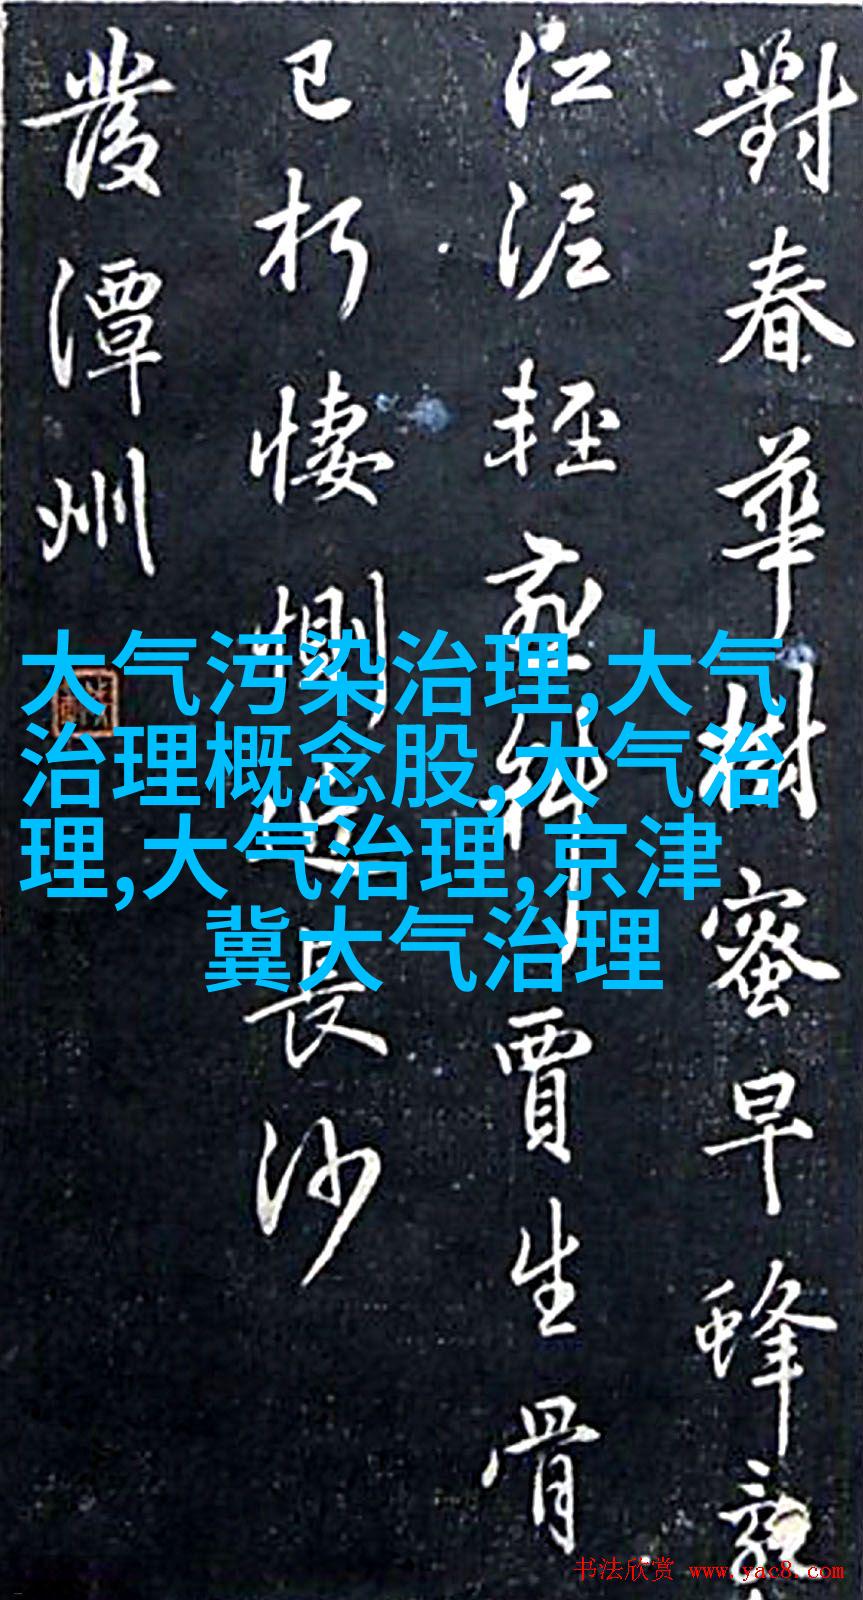 對春華樹蜜早蜂
江泥輕燕斜賈生骨
已朽悽惻近長沙
發潭州
大气污染治理,大气
治理概念股,大气治
理,大气治理,京津
冀大气治理
书法欣赏 www.yac8.com